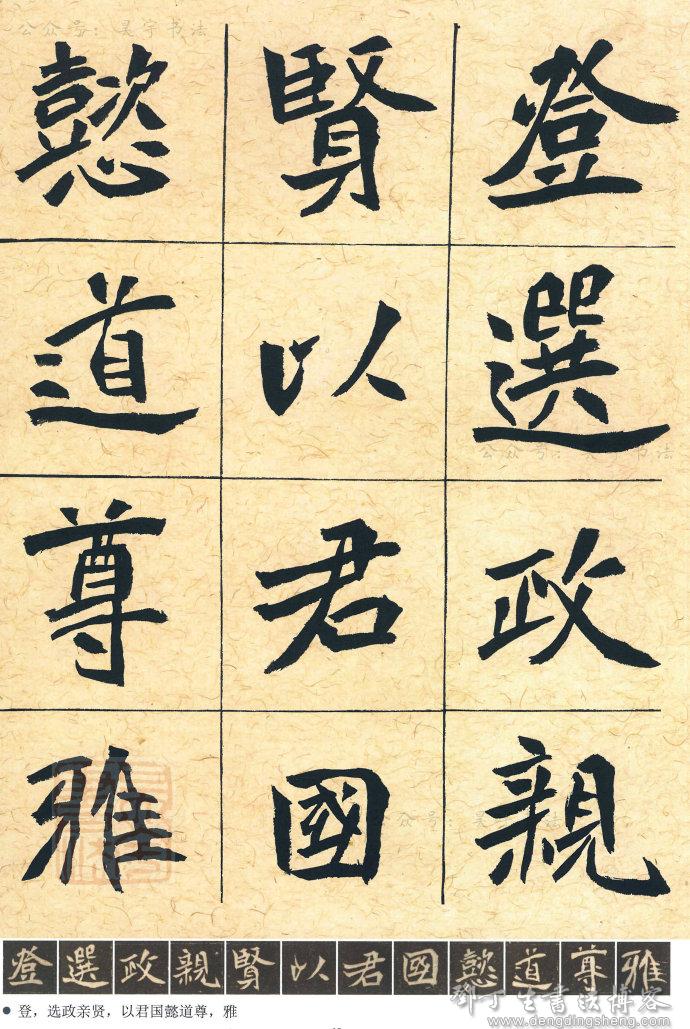 公众号：昊宇书法
登選政親
賢以君國
懿道尊雅
登選政親賢以君國懿道尊雅
登，选政亲贤，以君国懿道尊，雅
邓丁生書法博客
www.dengdingsheng.com